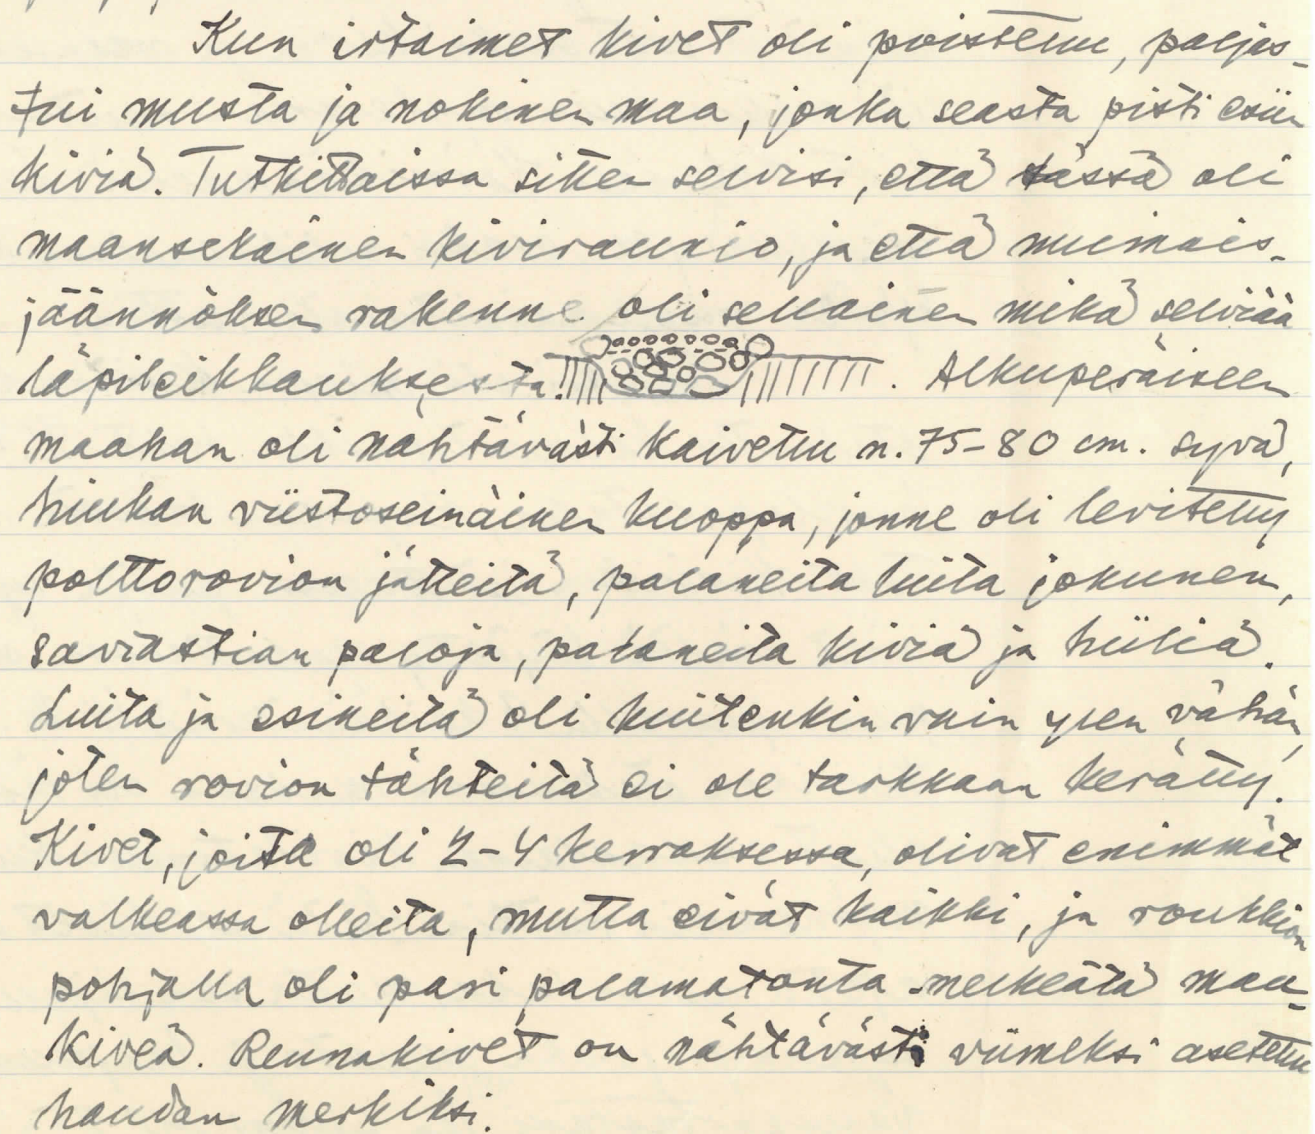 Kun irtaimet kivet oli poistettu, paljas-
tui musta ja nokinen maa, jonka seasta pisti esiin
kiviä. Tutkittaissa sitten selvisi, että tässä oli
maansekainen kiviraunio, ja että muinais-
jäännöksen rakenne oli sellainen mikä selviää
läpileikkauksesta: . Alkuperäiseen
maahan oli nähtävästi kaivettu n. 75-80 cm. syvä,
hiukan viistoseinäinen kuoppa, jonne oli levitetty
polttorovion jätteitä, palaneita luita jokunen,
saviastian paloja, palaneita kiviä ja hiiliä.
Luita ja esineitä oli kuitenkin vain ylen vähän,
joten rovion tähteitä ei ole tarkkaan kerätty.
Kivet, joita oli 2-4 kerroksessa, olivat enimmät
valkeassa olleita, mutta eivät kaikki, ja roukkion
pohjalla oli pari palamatonta melkeätä maa-
kiveä. Reunakivet on nähtävästi viimeksi asetettu
haudan merkiksi.